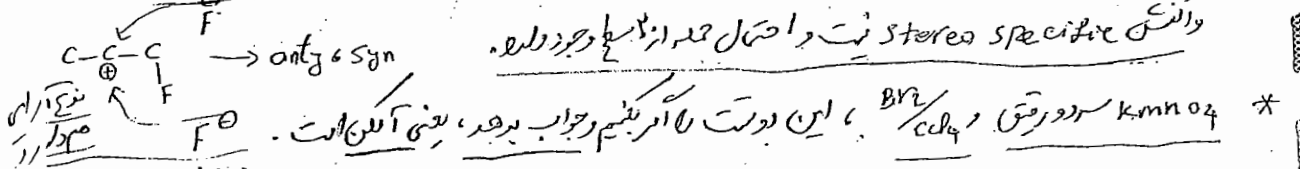 واکنش stereo specific نیست و احتمال حمله از ۲ سطح وجود دارد.
F
C-C-C → anty و syn
⊕
F
F⊖
* KMnO4 سرد و رقیق و Br2/CCl4 ، این دو تست را اگر بگیریم و جواب بدهد، یعنی آلکن است.